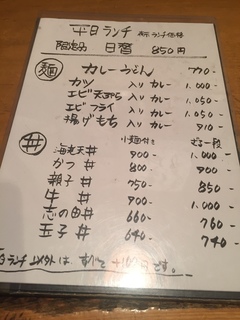 平日ランチ
限定 日替 850円
麺 カレーうどん 770-
カツ 入りカレー 1,000-
エビ天ぷら 入りカレー 1,050-
エビフライ 入りカレー 1,050-
揚げもち 入りカレー 910-
丼 小麺付き
海老天丼 900- 1,000-
かつ丼 800- 900-
親子丼 750- 850
牛丼 900- 1,000-
志の田丼 660- 760
玉子丼 640- 740
ランチ以外は すべて です。